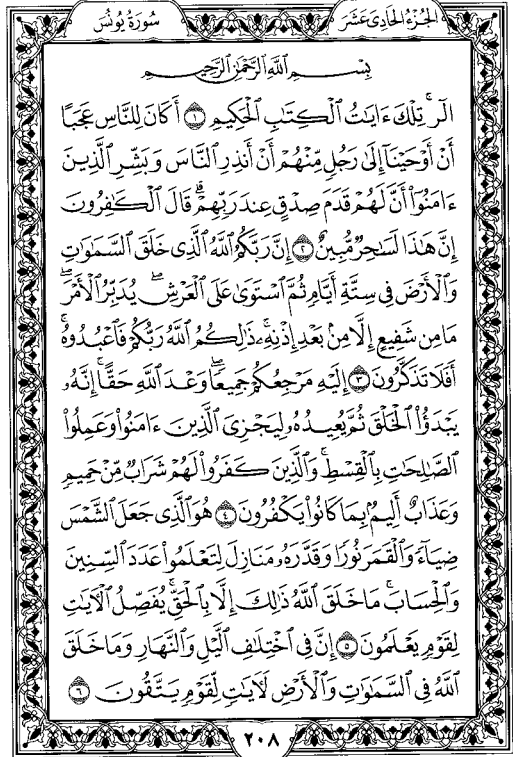 سُورَةُ يُونُسَ
الجُزْءُ الحَادِي عَشَرَ
بِسْمِ اللَّهِ الرَّحْمَٰنِ الرَّحِيمِ
الٓرۚ تِلۡكَ ءَايَٰتُ ٱلۡكِتَٰبِ ٱلۡحَكِيمِ ١ أَكَانَ لِلنَّاسِ عَجَبًا
أَنۡ أَوۡحَيۡنَآ إِلَىٰ رَجُلٖ مِّنۡهُمۡ أَنۡ أَنذِرِ ٱلنَّاسَ وَبَشِّرِ ٱلَّذِينَ
ءَامَنُوٓاْ أَنَّ لَهُمۡ قَدَمَ صِدۡقٍ عِندَ رَبِّهِمۡۗ قَالَ ٱلۡكَٰفِرُونَ
إِنَّ هَٰذَا لَسَٰحِرٞ مُّبِينٌ ٢ إِنَّ رَبَّكُمُ ٱللَّهُ ٱلَّذِي خَلَقَ ٱلسَّمَٰوَٰتِ
وَٱلۡأَرۡضَ فِي سِتَّةِ أَيَّامٖ ثُمَّ ٱسۡتَوَىٰ عَلَى ٱلۡعَرۡشِۖ يُدَبِّرُ ٱلۡأَمۡرَۖ
مَا مِن شَفِيعٍ إِلَّا مِنۢ بَعۡدِ إِذۡنِهِۦۚ ذَٰلِكُمُ ٱللَّهُ رَبُّكُمۡ فَٱعۡبُدُوهُۚ
أَفَلَا تَذَكَّرُونَ ٣ إِلَيۡهِ مَرۡجِعُكُمۡ جَمِيعٗاۖ وَعۡدَ ٱللَّهِ حَقًّاۚ إِنَّهُۥ
يَبۡدَؤُاْ ٱلۡخَلۡقَ ثُمَّ يُعِيدُهُۥ لِيَجۡزِيَ ٱلَّذِينَ ءَامَنُواْ وَعَمِلُواْ
ٱلصَّٰلِحَٰتِ بِٱلۡقِسۡطِۚ وَٱلَّذِينَ كَفَرُواْ لَهُمۡ شَرَابٞ مِّنۡ حَمِيمٖ
وَعَذَابٌ أَلِيمُۢ بِمَا كَانُواْ يَكۡفُرُونَ ٤ هُوَ ٱلَّذِي جَعَلَ ٱلشَّمۡسَ
ضِيَآءٗ وَٱلۡقَمَرَ نُورٗا وَقَدَّرَهُۥ مَنَازِلَ لِتَعۡلَمُواْ عَدَدَ ٱلسِّنِينَ
وَٱلۡحِسَابَۚ مَا خَلَقَ ٱللَّهُ ذَٰلِكَ إِلَّا بِٱلۡحَقِّۚ يُفَصِّلُ ٱلۡأٓيَٰتِ
لِقَوۡمٖ يَعۡلَمُونَ ٥ إِنَّ فِي ٱخۡتِلَٰفِ ٱلَّيۡلِ وَٱلنَّهَارِ وَمَا خَلَقَ
ٱللَّهُ فِي ٱلسَّمَٰوَٰتِ وَٱلۡأَرۡضِ لَأٓيَٰتٖ لِّقَوۡمٖ يَتَّقُونَ ٦
٢٠٨